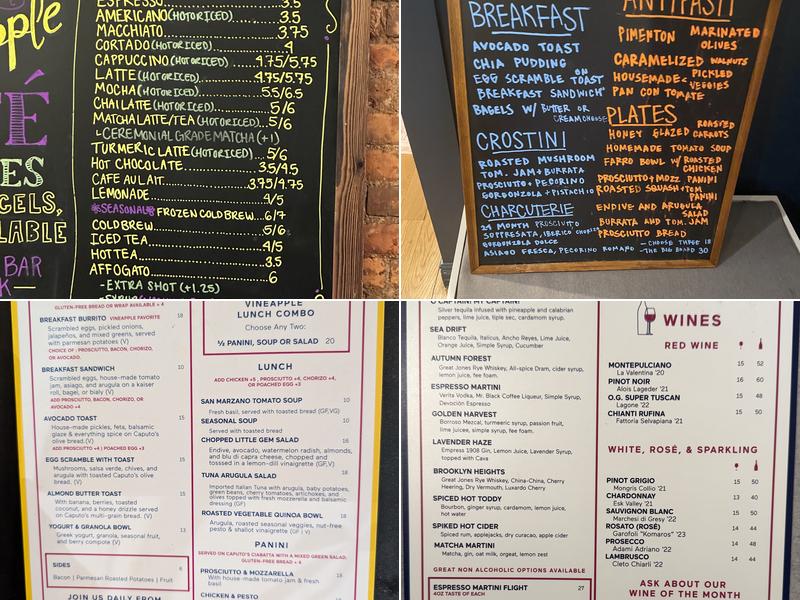 ople
É
ES
GELS,
LABLE
BAR
K
ESPRESSO 3.5
AMERICANO(HOT OR ICED) 3.5
MACCHIATO 3.75
CORTADO(HOT OR ICED) 4
CAPPUCCINO(HOT OR ICED) 4.75/5.75
LATTE(HOT OR ICED) 4.75/5.75
MOCHA(HOT OR ICED) 5.5/6.5
CHAI LATTE(HOT OR ICED) 5/6
MATCHA LATTE/TEA(HOT OR ICED) 5/6
CEREMONIAL GRADE MATCHA (+1)
TURMERIC LATTE(HOT OR ICED) 5/6
HOT CHOCOLATE 3.5/4.5
CAFE AU LAIT 3.75/4.75
LEMONADE 4/5
*SEASONAL* FROZEN COLD BREW 6/7
COLD BREW 5/6
ICED TEA 4/5
HOT TEA 3.5
AFFOGATO 6
-EXTRA SHOT (+1.25)
BREAKFAST
AVOCADO TOAST
CHIA PUDDING
EGG SCRAMBLE ON TOAST
BREAKFAST SANDWICH
BAGELS W/ BUTTER OR
CREAM CHEESE
CROSTINI
ROASTED MUSHROOM
TOM. JAM + BURRATA
PROSCIUTTO + PECORINO
GORGONZOLA + PISTACHIO
CHARCUTERIE
24 MONTH PROSCIUTTO
SOPPRESATA, IBERICO CHORIZO
GORGONZOLA DOLCE
ASIAGO FRESCA, PECORINO ROMANO
-CHOOSE THREE 18
-THE BIG BOARD 30
ANTIPASTI
PIMENTON MARINATED
OLIVES
CARAMELIZED WALNUTS
HOUSEMADE PICKLED
VEGGIES
PAN CON TOMATE
PLATES
HONEY GLAZED ROASTED
CARROTS
HOMEMADE TOMATO SOUP
FARRO BOWL W/ ROASTED
CHICKEN
PROSCIUTTO + MOZZ PANINI
ROASTED SQUASH + TOM
PANINI
ENDIVE AND ARUGULA
SALAD
BURRATA AND TOM. JAM
PROSCIUTTO BREAD
GLUTEN-FREE BREAD OR WRAP AVAILABLE + 4
BREAKFAST BURRITO VINEAPPLE FAVORITE 18
Scrambled eggs, pickled onions,
jalapeños, and mixed greens, served
with parmesan potatoes (V)
CHOICE OF : PROSCIUTTO, BACON, CHORIZO,
OR AVOCADO.
BREAKFAST SANDWICH 10
Scrambled eggs, house-made tomato
jam, asiago, and arugula on a kaiser
roll, bagel, or bialy (V)
ADD PROSCIUTTO, BACON, CHORIZO, OR
AVOCADO +4
AVOCADO TOAST 15
House-made pickles, feta, balsamic
glaze & everything spice on Caputo's
olive bread.(V)
ADD PROSCIUTTO +4 | POACHED EGG +3
EGG SCRAMBLE WITH TOAST 15
Mushrooms, salsa verde, chives, and
arugula with toasted Caputo's olive
bread. (V)
ALMOND BUTTER TOAST 15
With banana, berries, toasted
coconut, and a honey drizzle served
on Caputo's multi-grain bread. (V)
YOGURT & GRANOLA BOWL 13
Greek yogurt, granola, seasonal fruit,
and berry compote (V)
SIDES 8
Bacon | Parmesan Roasted Potatoes | Fruit
JOIN US DAILY FROM
VINEAPPLE
LUNCH COMBO
Choose Any Two:
½ PANINI, SOUP OR SALAD 20
LUNCH
ADD CHICKEN +5 , PROSCIUTTO +4, CHORIZO +4,
OR POACHED EGG +3
SAN MARZANO TOMATO SOUP 10
Fresh basil, served with toasted bread (GF,VG)
SEASONAL SOUP 10
Served with toasted bread
CHOPPED LITTLE GEM SALAD 16
Endive, avocado, watermelon radish, almonds,
and blu di capra cheese, chopped and
tosssed in a lemon-dill vinaigrette (GF,V)
TUNA ARUGULA SALAD 18
Imported Italian Tuna with arugula, baby potatoes,
green beans, cherry tomatoes, artichokes, and
olives topped with fresh mozzerella and balsamic
dressing (GF)
ROASTED VEGETABLE QUINOA BOWL 18
Arugula, roasted seasonal veggies, nut-free
pesto & shallot vinaigrette (GF | V)
PANINI
SERVED ON CAPUTO'S CIABATTA WITH A MIXED GREEN SALAD;
GLUTEN-FREE BREAD + 4
PROSCIUTTO & MOZZARELLA 18
With house-made tomato jam & fresh
basil
CHICKEN & PESTO 18
O CAPTAIN! MY CAPTAIN!
Silver tequila infused with pineapple and calabrian
peppers, lime juice, tiple sec, cardamom syrup.
SEA DRIFT
Blanco Tequila, Italicus, Ancho Reyes, Lime Juice,
Orange Juice, Simple Syrup, Cucumber
AUTUMN FOREST
Great Jones Rye Whiskey, All-spice Dram, cider syrup,
lemon juice, fee foam.
ESPRESSO MARTINI
Verita Vodka, Mr. Black Coffee Liqueur, Simple Syrup,
Devoción Espresso
GOLDEN HARVEST
Borroso Mezcal, turmeric syrup, passion fruit,
lime juices, simple syrup, fee foam.
LAVENDER HAZE
Empress 1908 Gin, Lemon Juice, Lavender Syrup,
topped with Cava
BROOKLYN HEIGHTS
Great Jones Rye Whiskey, China-China, Cherry
Heering, Dry Vermouth, Luxardo Cherry
SPICED HOT TODDY
Bourbon, ginger syrup, cardamom, lemon juice,
hot water
SPIKED HOT CIDER
Spiced rum, applejacks, dry curacao, apple cider
MATCHA MARTINI
Matcha, gin, oat milk, orgeat, lemon zest
GREAT NON ALCOHOLIC OPTIONS AVAILABLE
ESPRESSO MARTINI FLIGHT 27
4OZ TASTE OF EACH
WINES
RED WINE
MONTEPULCIANO 15 52
La Valentina '20
PINOT NOIR 16 60
Alois Lageder '21
O.G. SUPER TUSCAN 15 48
Lagone '22
CHIANTI RUFINA 15 50
Fattoria Selvapiana '21
WHITE, ROSÉ, & SPARKLING
PINOT GRIGIO 15 50
Mongris Collio '21
CHARDONNAY 13 40
Esk Valley '21
SAUVIGNON BLANC 15 50
Marchesi di Gresy '22
ROSATO (ROSÉ) 14 44
Garofoli "Komaros" '23
PROSECCO 14 48
Adami Adriano '22
LAMBRUSCO 14 44
Cleto Chiarli '22
ASK ABOUT OUR
WINE OF THE MONTH